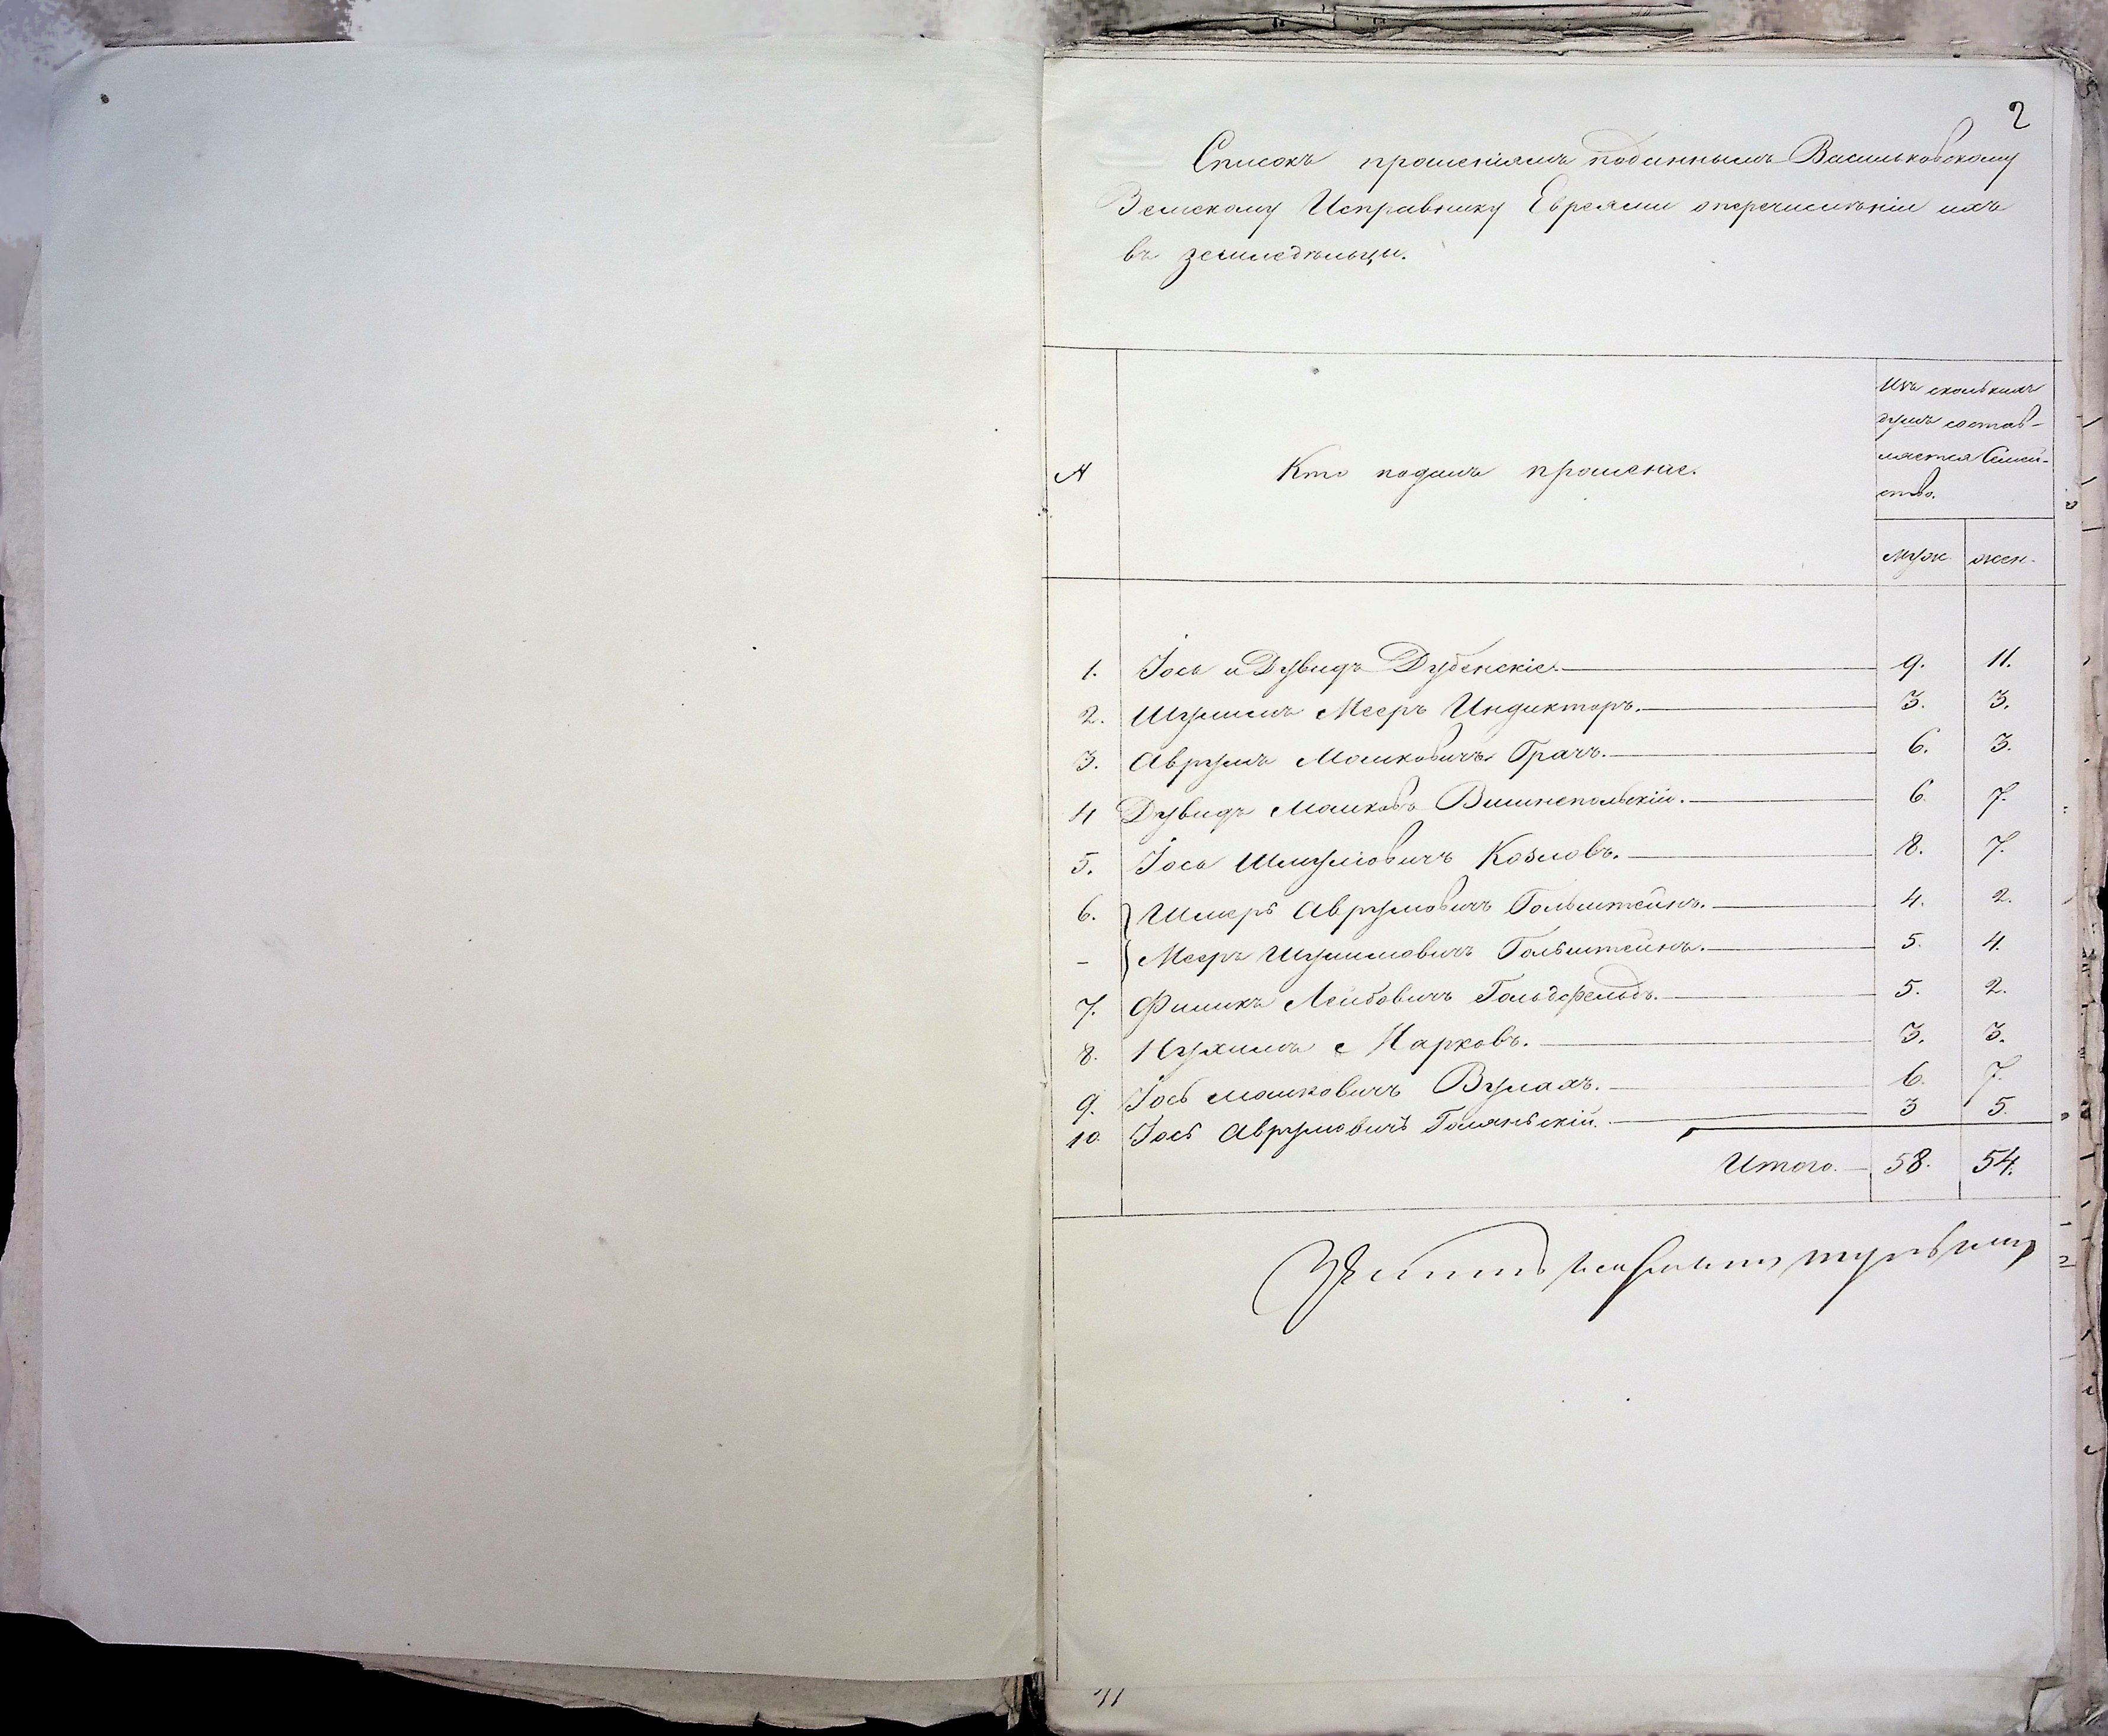 2
Списокъ прошеніямъ поданнымъ Васильковскому
Земскому Исправнику Евреями о перечисленіи ихъ
въ земледѣльцы.
Изъ сколькихъ
душъ состав-
ляется Семей-
ство.
№ Кто подалъ прошеніе.
муж. жен.
1. Іось и Дувидъ Дубенскіе. 9. 11.
2. Шулимъ Мееръ Индикторъ. 3. 3.
3. Аврумъ Мошковичъ Грачъ. 6. 3.
4 Дувидъ Мошковъ Вишнепольскій. 6. 7.
5. Іось Шмуліовичъ Козловъ. 8. 7.
6. Шмеръ Аврумовичъ Гольштейнъ. 4. 2.
- Мееръ Шулимовичъ Гольштейнъ. 5. 4.
7. Фишкъ Лейбовичъ Гольдфельдъ. 5. 2.
8. Нухимъ Марковъ. 3. 3.
9. Іось Мошковичъ Вулахъ. 6. 7.
10. Іось Аврумовичъ Голяньскій. 3 5.
Итого. 58. 54.